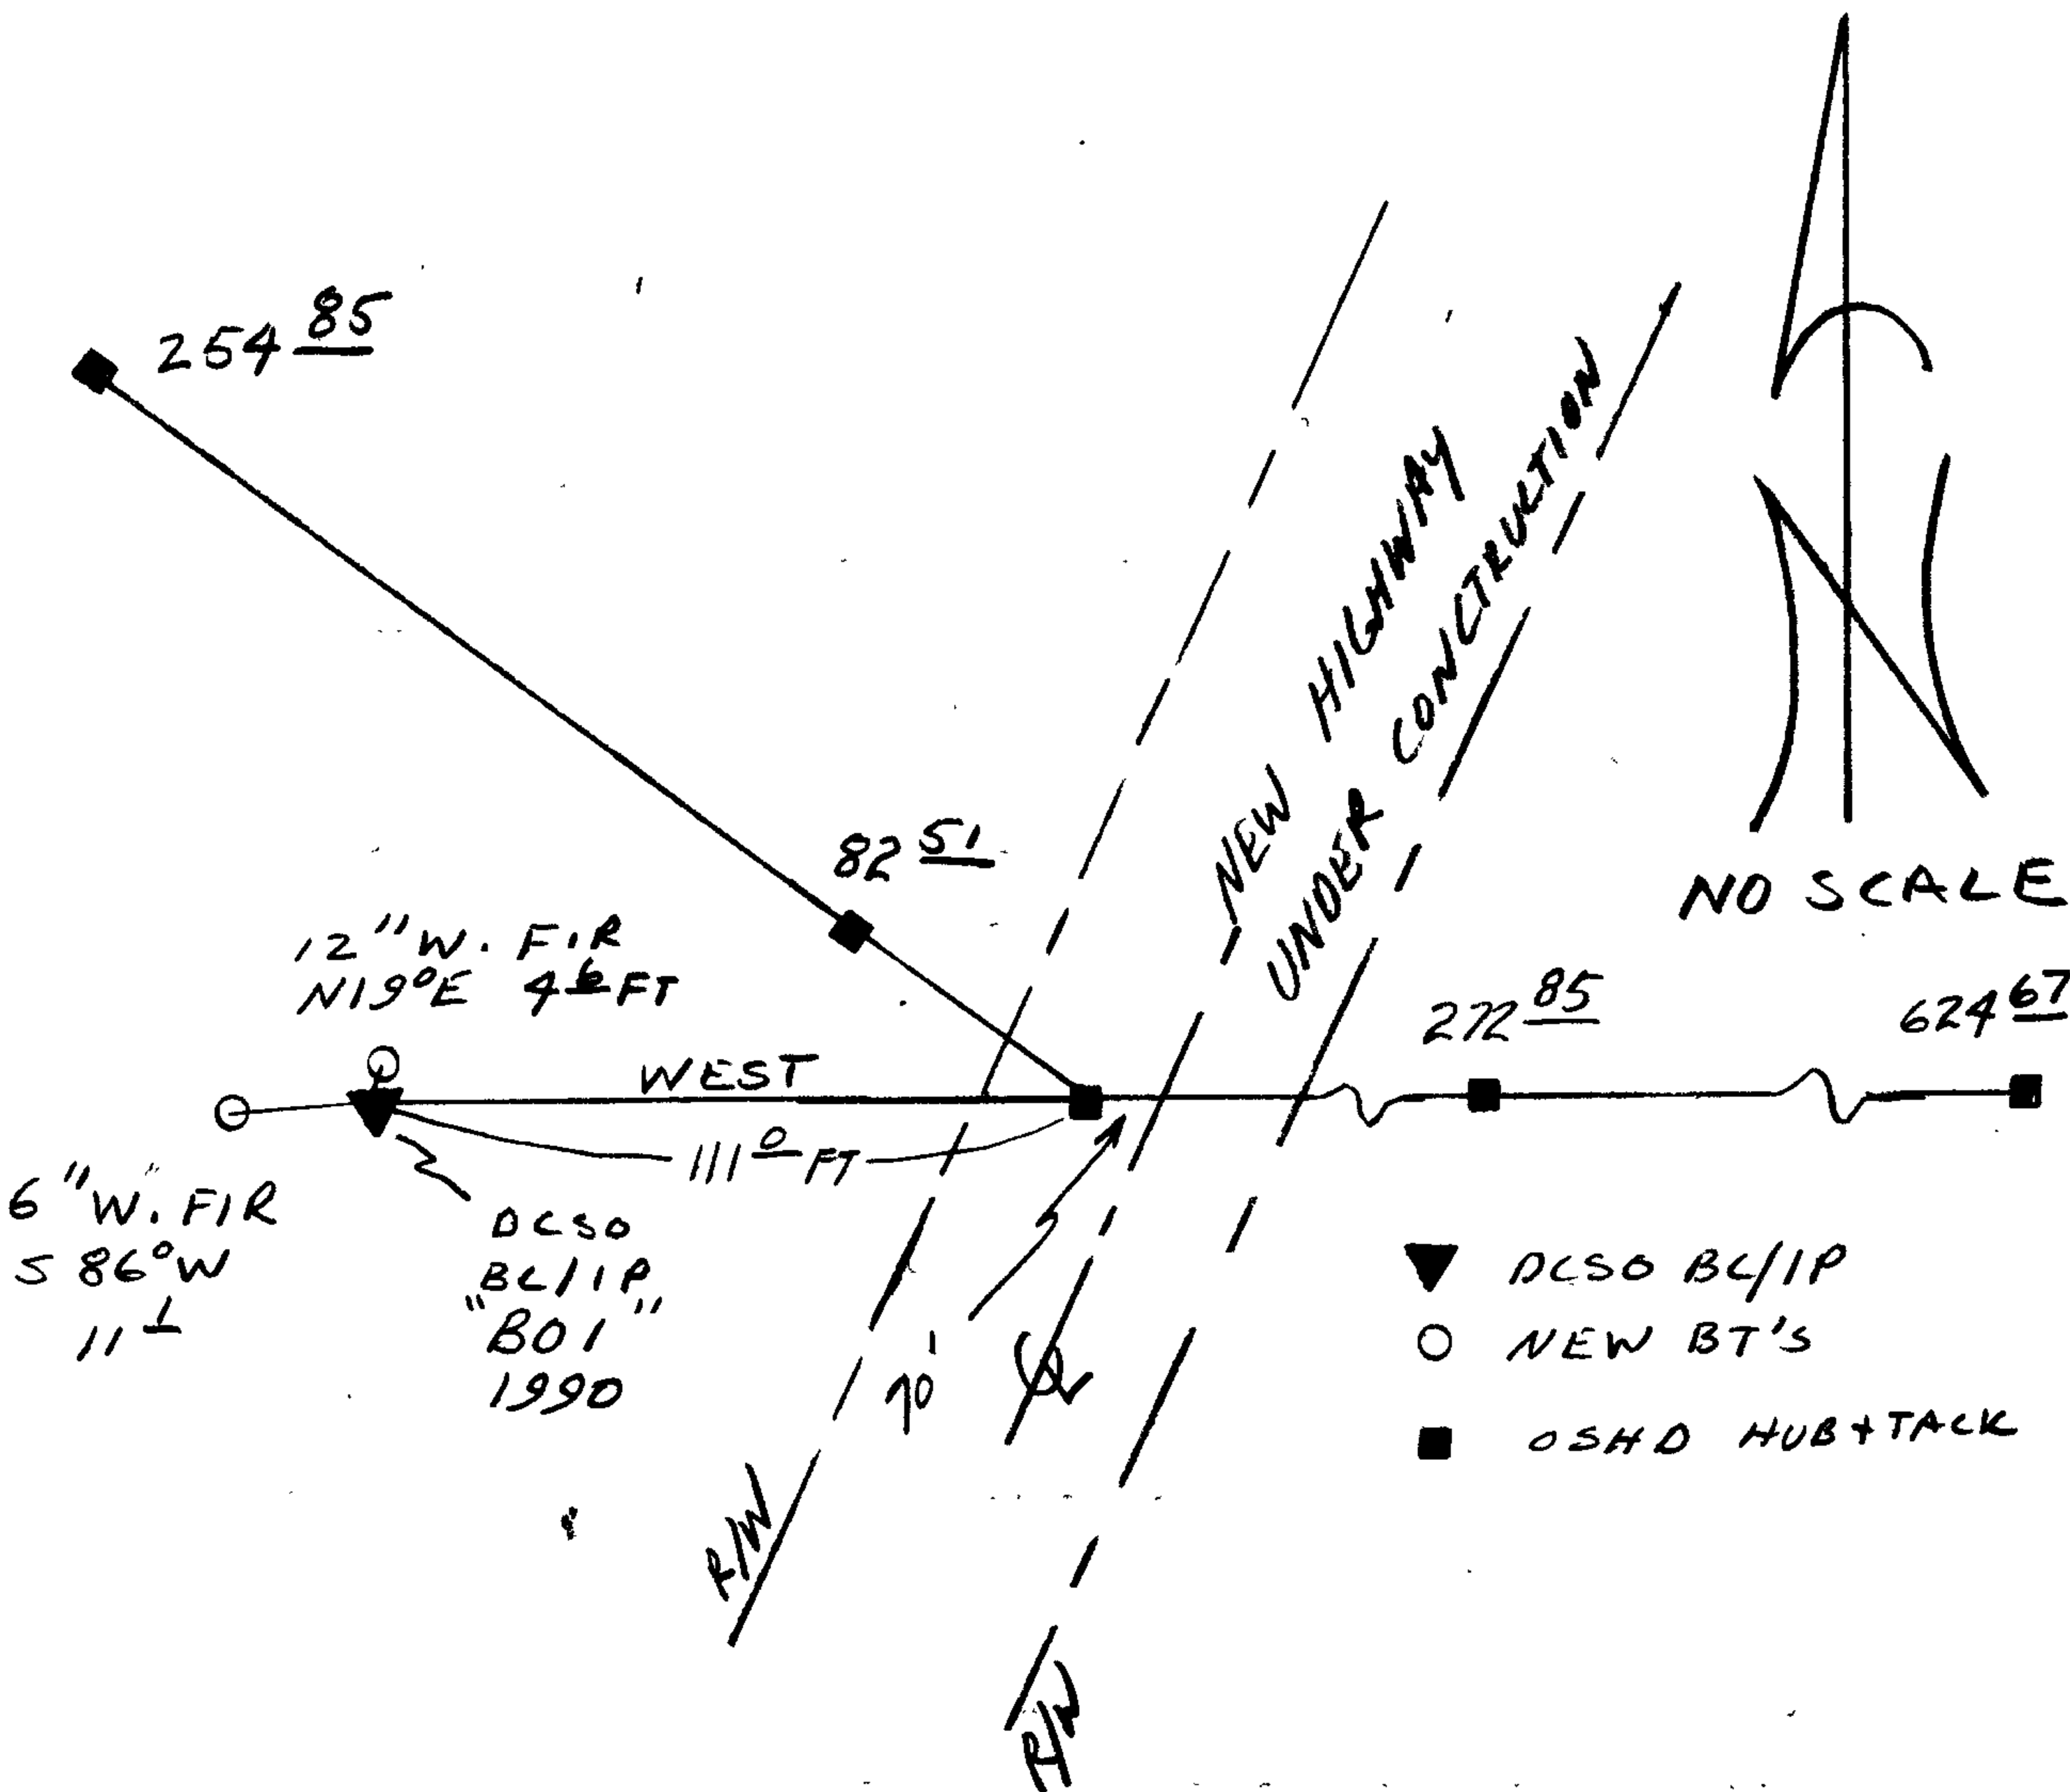 254 85
NEW HIGHWAY
UNDER CONCTRUCTION
82 51
NO SCALE
12" W. FIR
N19°E 4 6 FT
272 85
624 67
WEST
111 0 FT
6" W. FIR
S 86° W
11 1
DCSO
BC/IP
"BO1"
1990
DCSO BC/IP
NEW BT'S
OSHD HUB+TACK
R/W
R/W